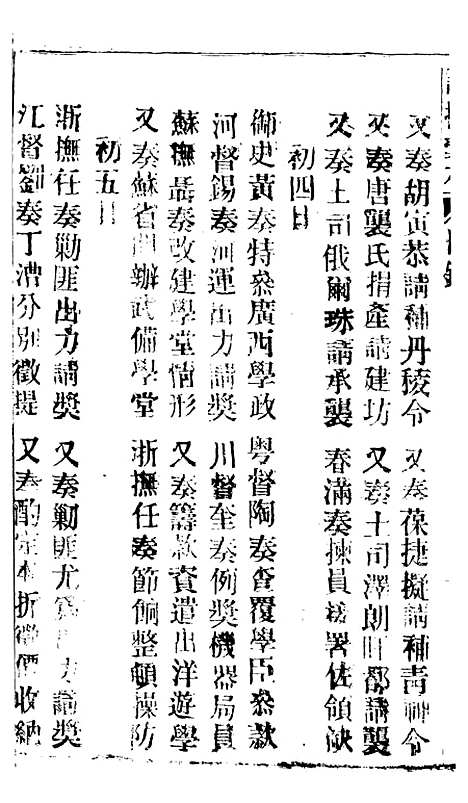 又奏胡寅恭請補丹稜令 又奏葆捷擬請補靑神令
又奏唐龔氏捐產請建坊 又奏土司澤朗旺都請襲
又奏土司俄爾珠請承襲 春滿奏揀員 署佐領缺
初四日
御史黃奏特叅廣西學政 粵督陶奏查覆學臣叅款
河督錫奏河運出力請獎 川督奎奏例獎機器局員
蘇撫聶奏改建學堂情形 又奏籌款資遣出洋遊學
又奏蘇省 辦武備學堂 浙撫任奏節餉整頓操防
初五日
浙撫任奏勦匪出力請獎 又奏勦匪尤爲出力請獎
江督劉奏丁漕分別徵提 又奏酌定本折徵價收納